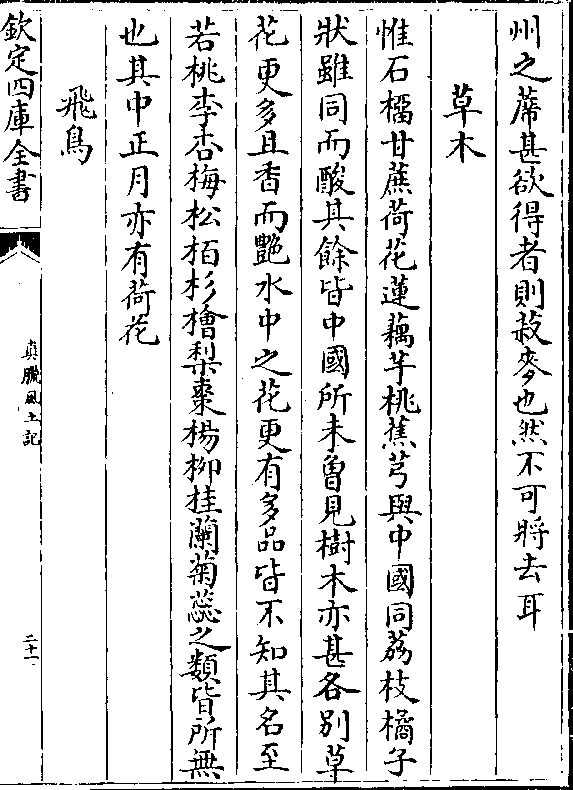 州之蓆甚欲得者則菽麥也然不可將去耳
草木
惟石橊甘蔗荷花蓮藕芋桃蕉芎與中國同荔枝橘子
狀雖同而酸其餘皆中國所未曾見樹木亦甚各別草
花更多且香而艷水中之花更有多品皆不知其名至
若桃李杏梅松栢杉檜梨棗楊柳桂蘭菊蕊之類皆所無
也其中正月亦有荷花
飛鳥
欽定四庫全書
真臘風土記
二十一